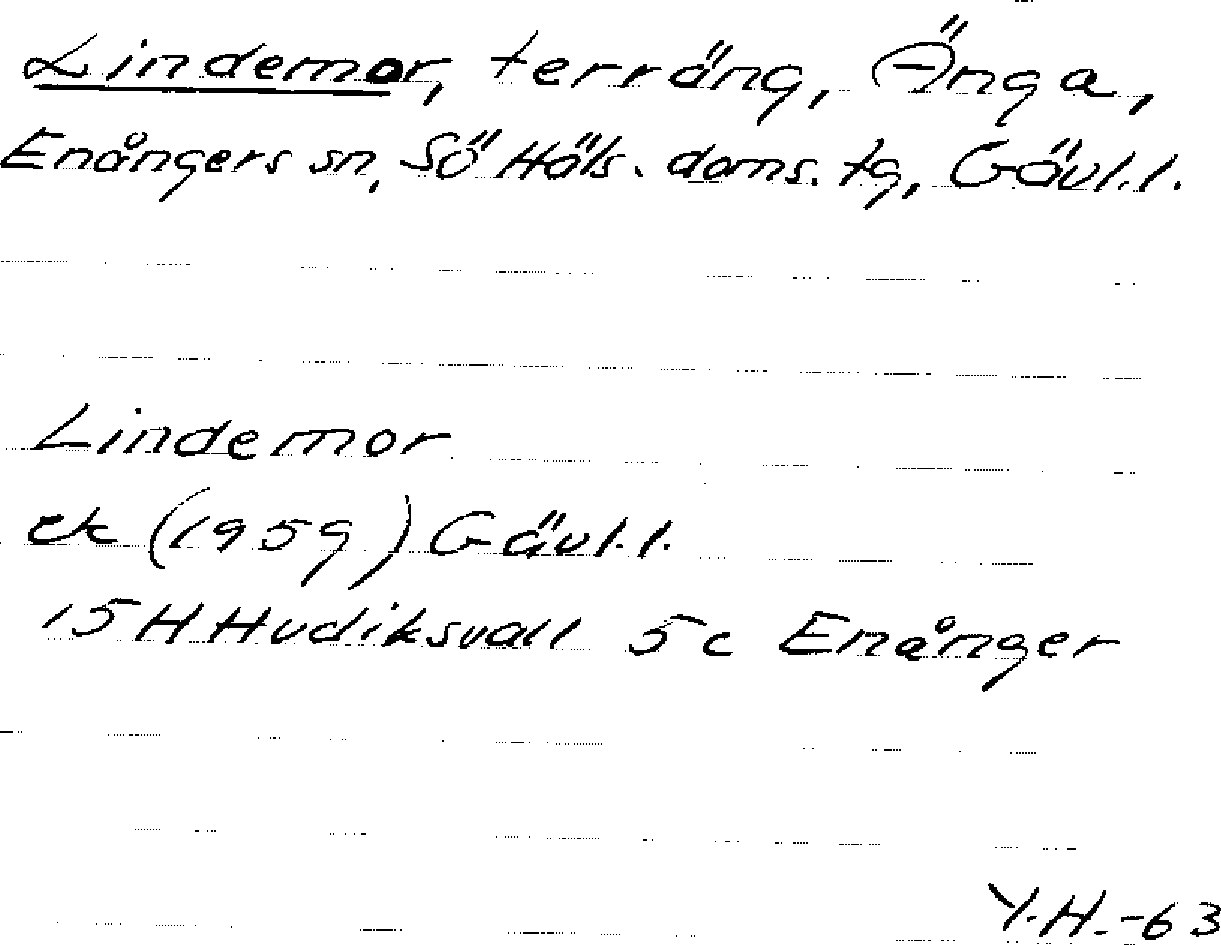 Lindemor, terräng, Änga,
Enångers sn, Sö Häls. doms. tg, Gävl.l.
Lindemor
ek (1959) Gävl.l.
15H Hudiksvall 5c Enånger
Y.H.-63